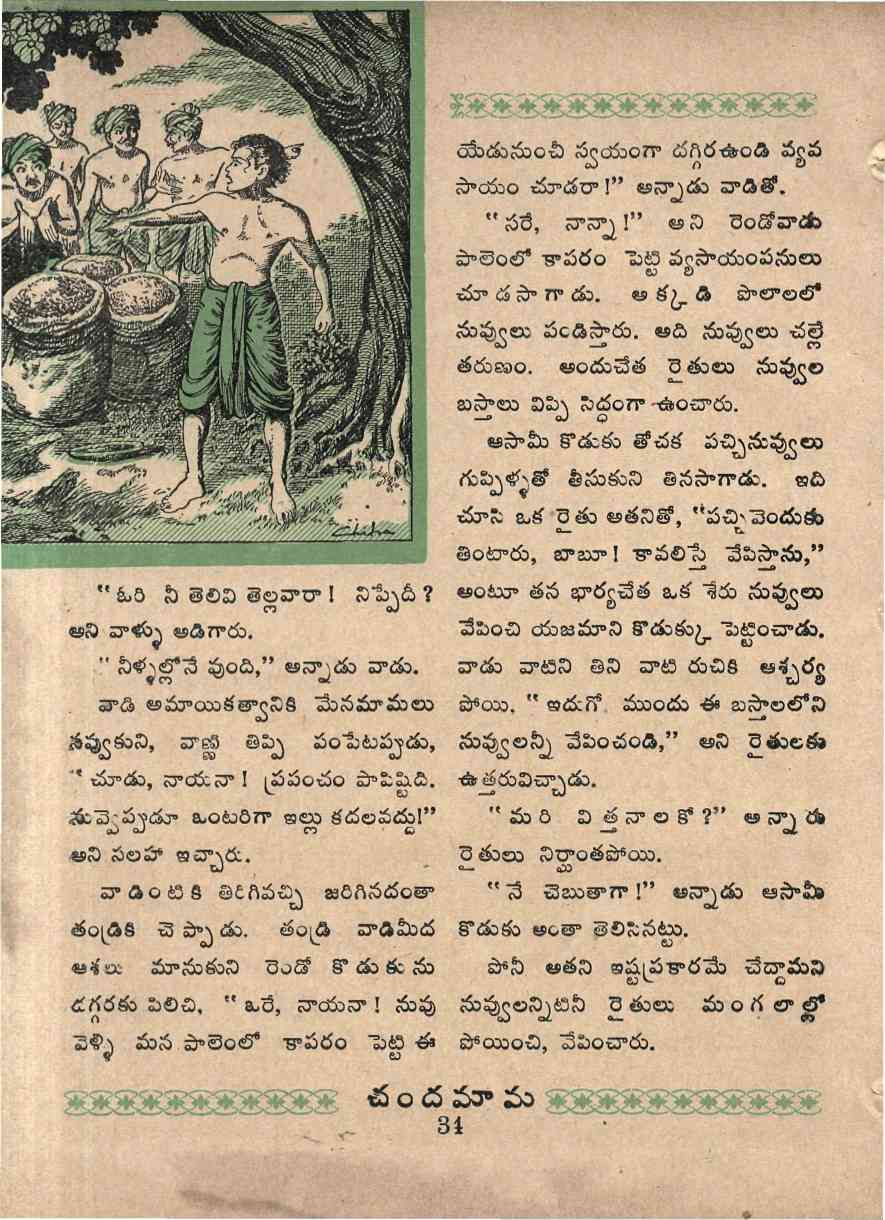 “ ఓరి నీ తెలివి తెల్లవారా! నిప్పేదీ?
అని వాళ్ళు అడిగారు.
“ నీళ్ళల్లోనే వుంది,” అన్నాడు వాడు.
వాడి అమాయికత్వానికి మేనమామలు
నవ్వుకుని, వాణ్ణి తిప్పి పంపేటప్పుడు,
“ చూడు, నాయనా! ప్రపంచం పాపిష్టిది.
నువ్వెప్పుడూ ఒంటరిగా ఇల్లు కదలవద్దు!”
అని సలహా ఇచ్చారు.
వాడింటికి తిరిగివచ్చి జరిగినదంతా
తండ్రికి చెప్పాడు. తండ్రి వాడిమీద
ఆశలు మానుకుని రెండో కొడుకును
దగ్గరకు పిలిచి, “ ఒరే, నాయనా! నువు
వెళ్ళి మన పాలెంలో కాపరం పెట్టి ఈ
యేడునుంచీ స్వయంగా దగ్గిరఉండి వ్యవ
సాయం చూడరా!” అన్నాడు వాడితో.
“ సరే, నాన్నా!” అని రెండోవాడు
పాలెంలో కాపరం పెట్టి వ్యసాయంపనులు
చూడసాగాడు. అక్కడి పొలాలలో
నువ్వులు పండిస్తారు. అది నువ్వులు చల్లే
తరుణం. అందుచేత రైతులు నువ్వుల
బస్తాలు విప్పి సిద్ధంగా ఉంచారు.
ఆసామీ కొడుకు తోచక పచ్చినువ్వులు
గుప్పిళ్ళతో తీసుకుని తినసాగాడు. ఇది
చూసి ఒక రైతు అతనితో, “పచ్చివెందుకు
తింటారు, బాబూ! కావలిస్తే వేపిస్తాను,”
అంటూ తన భార్యచేత ఒక శేరు నువ్వులు
వేపించి యజమాని కొడుక్కు పెట్టించాడు.
వాడు వాటిని తిని వాటి రుచికి ఆశ్చర్య
పోయి, “ ఇదుగో ముందు ఈ బస్తాలలోని
నువ్వులన్నీ వేపించండి,” అని రైతులకు
ఉత్తరువిచ్చాడు.
“ మరి విత్తనాలకో?” అన్నారు
రైతులు నిర్ఘాంతపోయి.
“ నే చెబుతాగా!” అన్నాడు ఆసామీ
కొడుకు అంతా తెలిసినట్టు.
పోనీ అతని ఇష్టప్రకారమే చేద్దామని
నువ్వులన్నిటినీ రైతులు మంగలాల్లో
పోయించి, వేపించారు.
చందమామ
34
Chitra